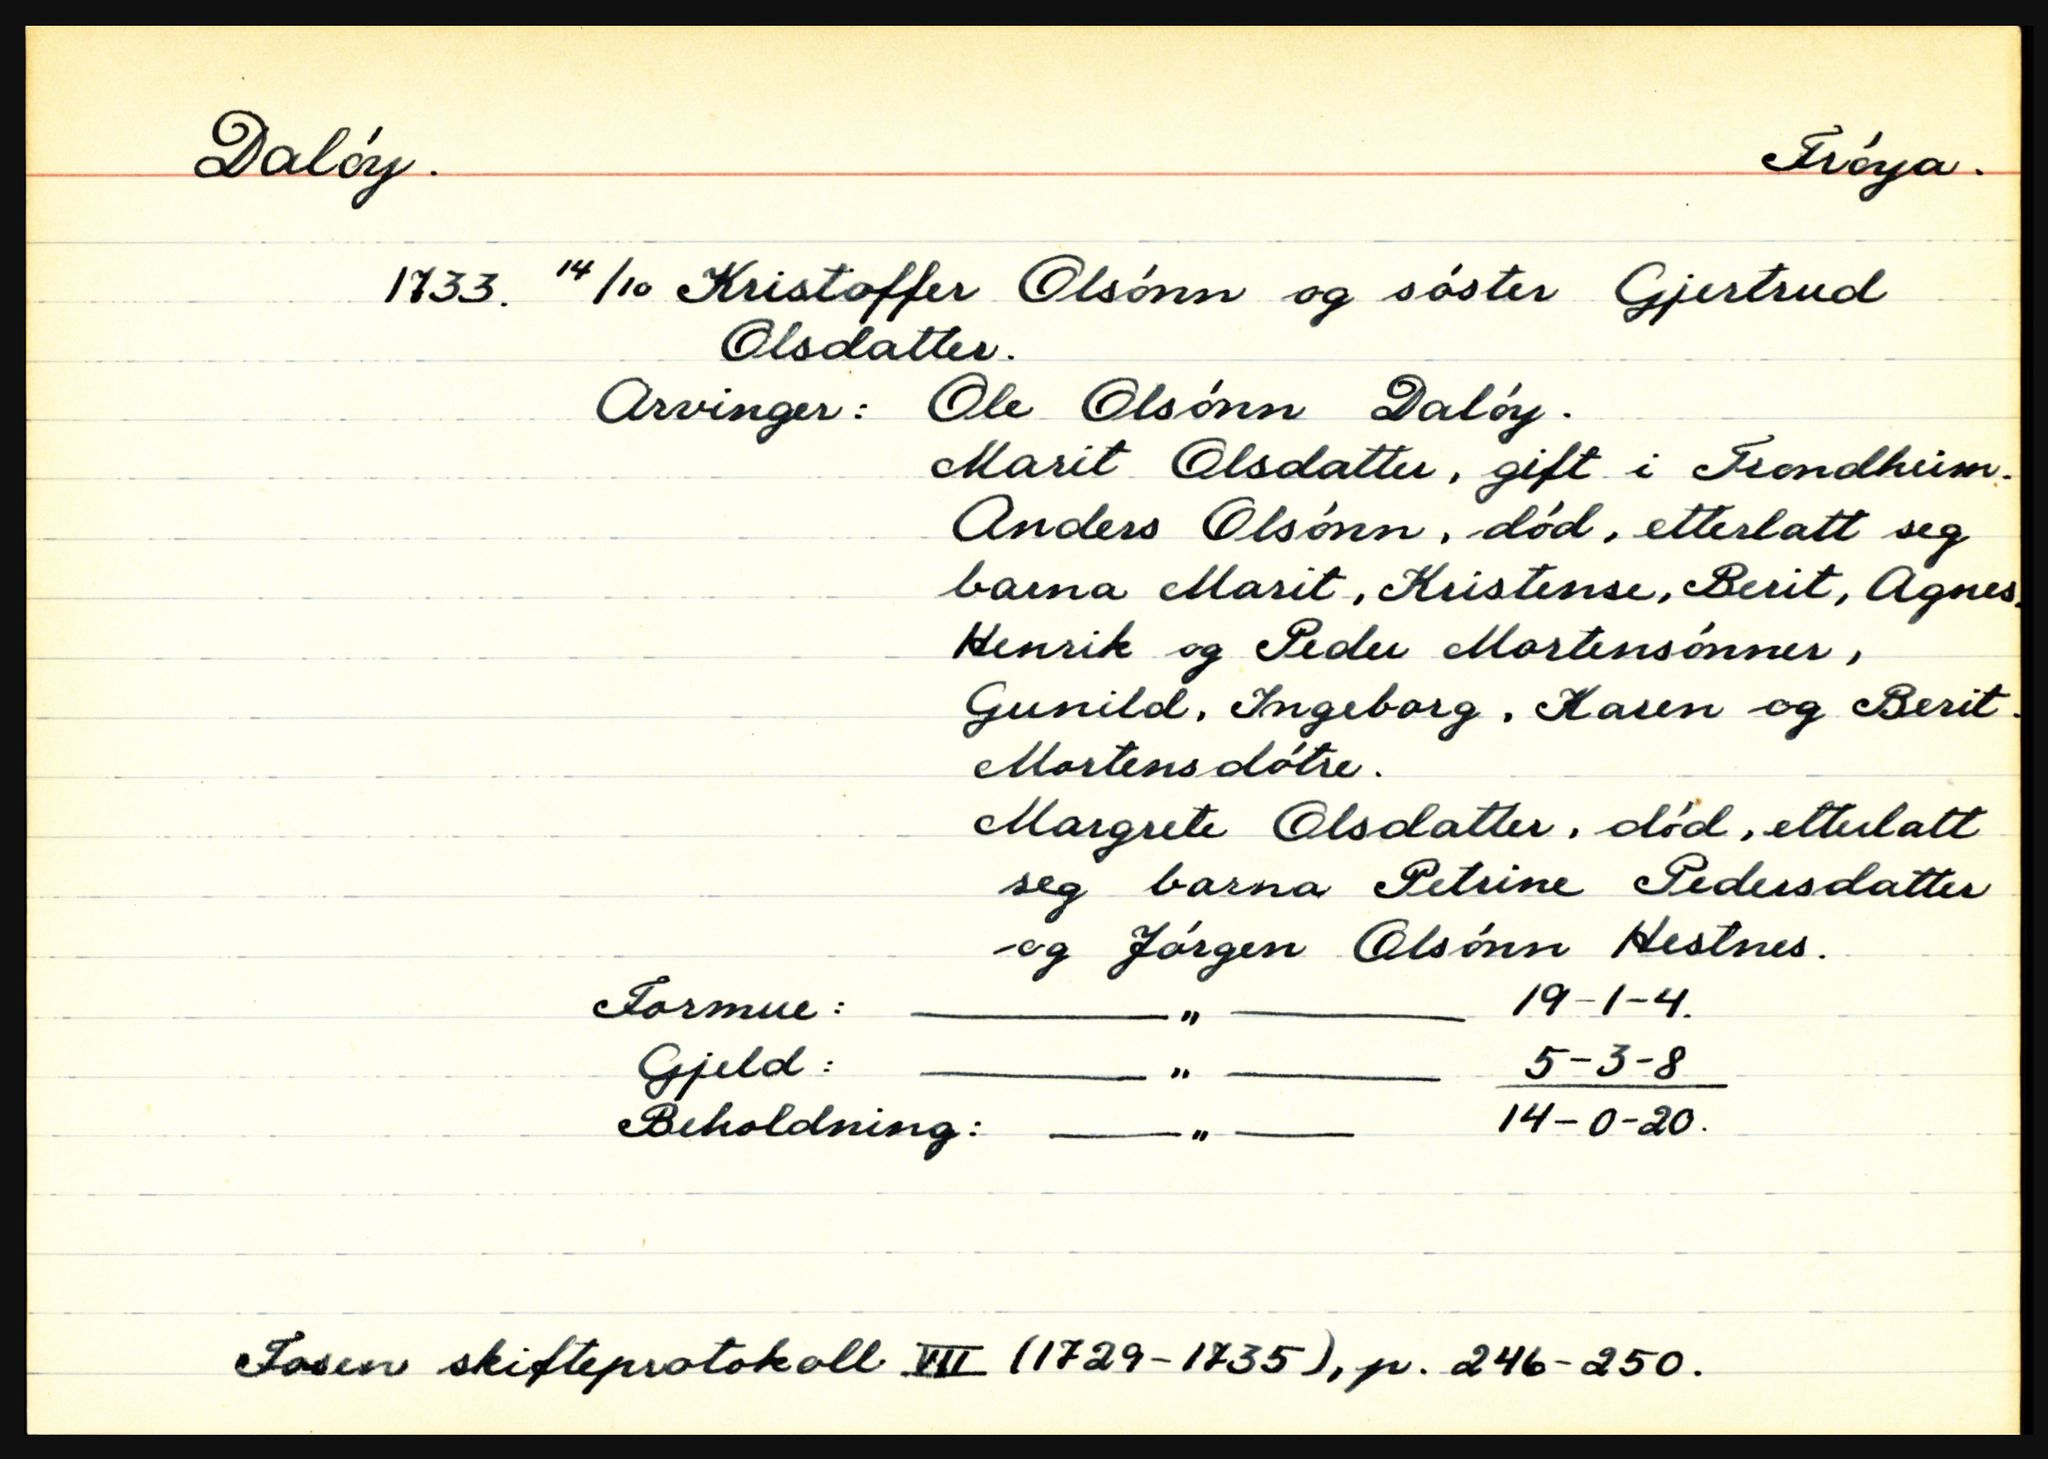 Dalóy. Fróya.
1733. 14/10 Kristoffer Olsónn og sóster Gjertrud
Olsdatter.
Arvinger: Ole Olsónn Dalóy.
Marit Olsdatter, gift i Trondheim.
Anders Olsónn, dód, etterlatt seg
barna Marit, Kristense, Berit, Agnes.
Henrik og Peder Mortensónner,
Gunild, Ingeborg, Karen og Berit.
Mortensdótre.
Margrete Olsdatter, dód, etterlatt
seg barna Petrine Pedersdatter
og Jórgen Olsónn Hestnes.
Formue: — „ — 19-1-4.
Gjeld: — „ — 5-3-8
Beholdning: — „ — 14-0-20.
Fosen skifteprotokoll VII (1729-1735), p. 246-250.